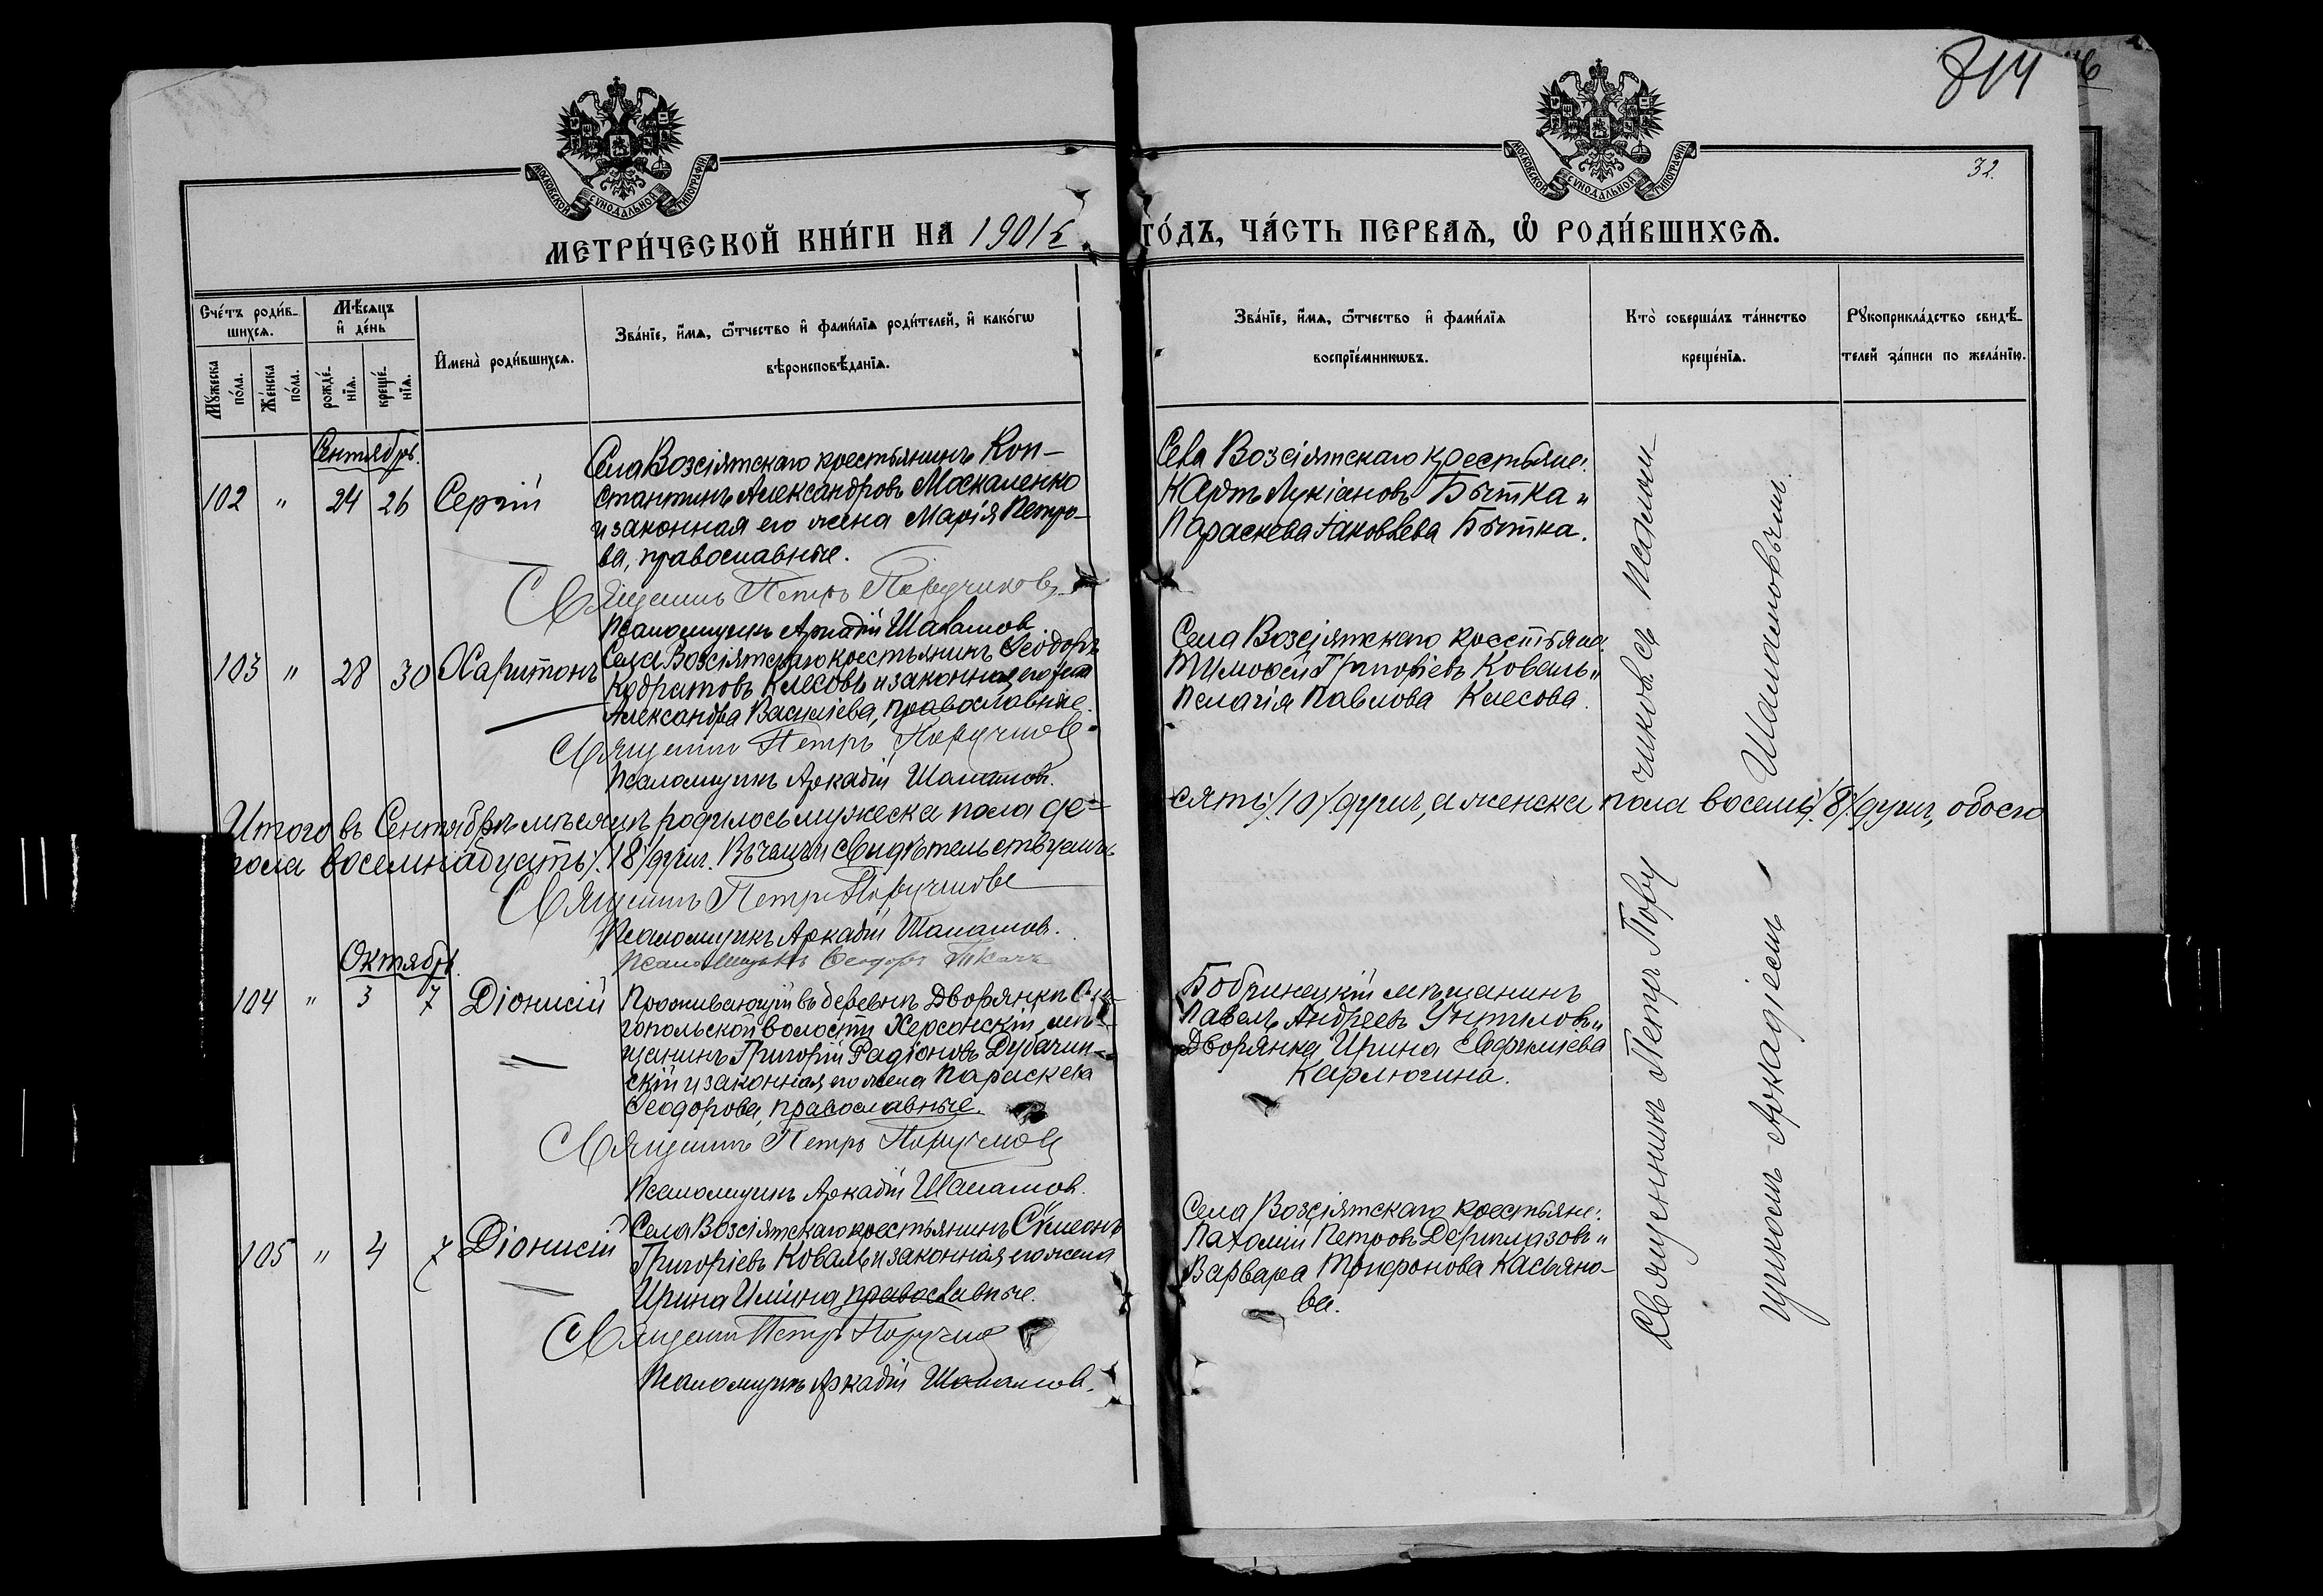 814
32.
МОСКОВСКОЙ СѴНОДАЛЬНОЙ ТИПОГРАФІИ
МОСКОВСКОЙ СѴНОДАЛЬНОЙ ТИПОГРАФІИ
МЕТРИ́ЧЕСКОЙ КНИ́ГИ НА 1901
ГО́ДЪ, ЧА́СТЬ ПЕРВАѦ, Ѽ РОДИ́ВШИХСѦ.
Сче́тъ роди́в-
шихсѧ.
Мꙋ́жеска по́ла.
Же́нска по́ла.
Мѣ́сѧцъ
и҆ де́нь
рожде́-
нїѧ.
креще́-
нїѧ.
И҆мена̀ роди́вшихсѧ.
Зва́нїе, и҆́мѧ, ѻ҆́тчество и҆ фами́лїѧ роди́телей, и҆ како́гѡ
вѣроисповѣ́данїѧ.
Зва́нїе, и҆́мѧ, ѻ҆́тчество и҆ фами́лїѧ
воспрїе́мникѡвъ.
Кто̀ соверша́лъ та́инство
креще́нїѧ.
Рꙋкоприкла́дство свидѣ́-
телей за́писи по жела́нїю.
Сентябрь.
102 " 24 26 Сергій
Села Возсіятскаго крестьянинъ Кон-
стантинъ Александровъ Москаленко
и законная его жена Марія Петро-
ва, православные.
Священникъ Петръ Поручиковъ
Псаломщикъ Аркадій Шаламов
Села Возсіятскаго крестьяне:
Карпъ Лукіановъ Бытка и
Параскева Іаковлева Бытка.
103 " 28 30 Харитонъ
Села Возсіятскаго крестьянинъ Ѳеодоръ
Кодратовъ Клесовъ и законная его жена
Александра Василіева, православные.
Священникъ Петръ Поручиковъ
Псаломщикъ Аркадій Шаламов.
Села Возсіятскаго крестьяне:
Тимоѳей Григоріевъ Коваль и
Пелагія Павлова Клесова.
Итого въ Сентябрѣ мѣсяцѣ родилось мужеска пола де-
сять /10/ душъ, а женска пола восемь /8/ душъ, обоего
пола восемнадцать /18/ душъ. Въ чемъ и свидѣтельствуемъ
Священникъ Петръ Поручиковъ
Псаломщикъ Аркадій Шаламов.
Псаломщикъ Ѳеодоръ
Октябрь.
104 " 3 7 Діонисій
Проживающій въ деревнѣ Дворянкѣ
гопольской волости Херсонскій мѣ-
щанинъ Григорій Радіоновъ Дубачин-
скій и законная его жена Параскева
Ѳеодорова, православные.
Священникъ Петръ Поручиковъ
Псаломщикъ Аркадій Шаламов.
Бобринецкій мѣщанинъ
Павелъ Андреевъ и
Дворянка Ирина Евфиміева
Карлюгина.
105 " 4 7 Діонисій
Села Возсіятскаго крестьянинъ Сѷмеонъ
Григоріевъ Коваль и законная его жена
Ирина Иліина православные.
Священникъ Петръ Поручиковъ
Псаломщикъ Аркадій Шаламов.
Села Возсіятскаго крестьяне:
Пахомій Петровъ Дериглазовъ и
Варвара Трифонова Касьяно-
ва.
Священникъ Петръ Пору
чиковъ съ Псалом
щикомъ Аркадіемъ
Шаламовымъ.